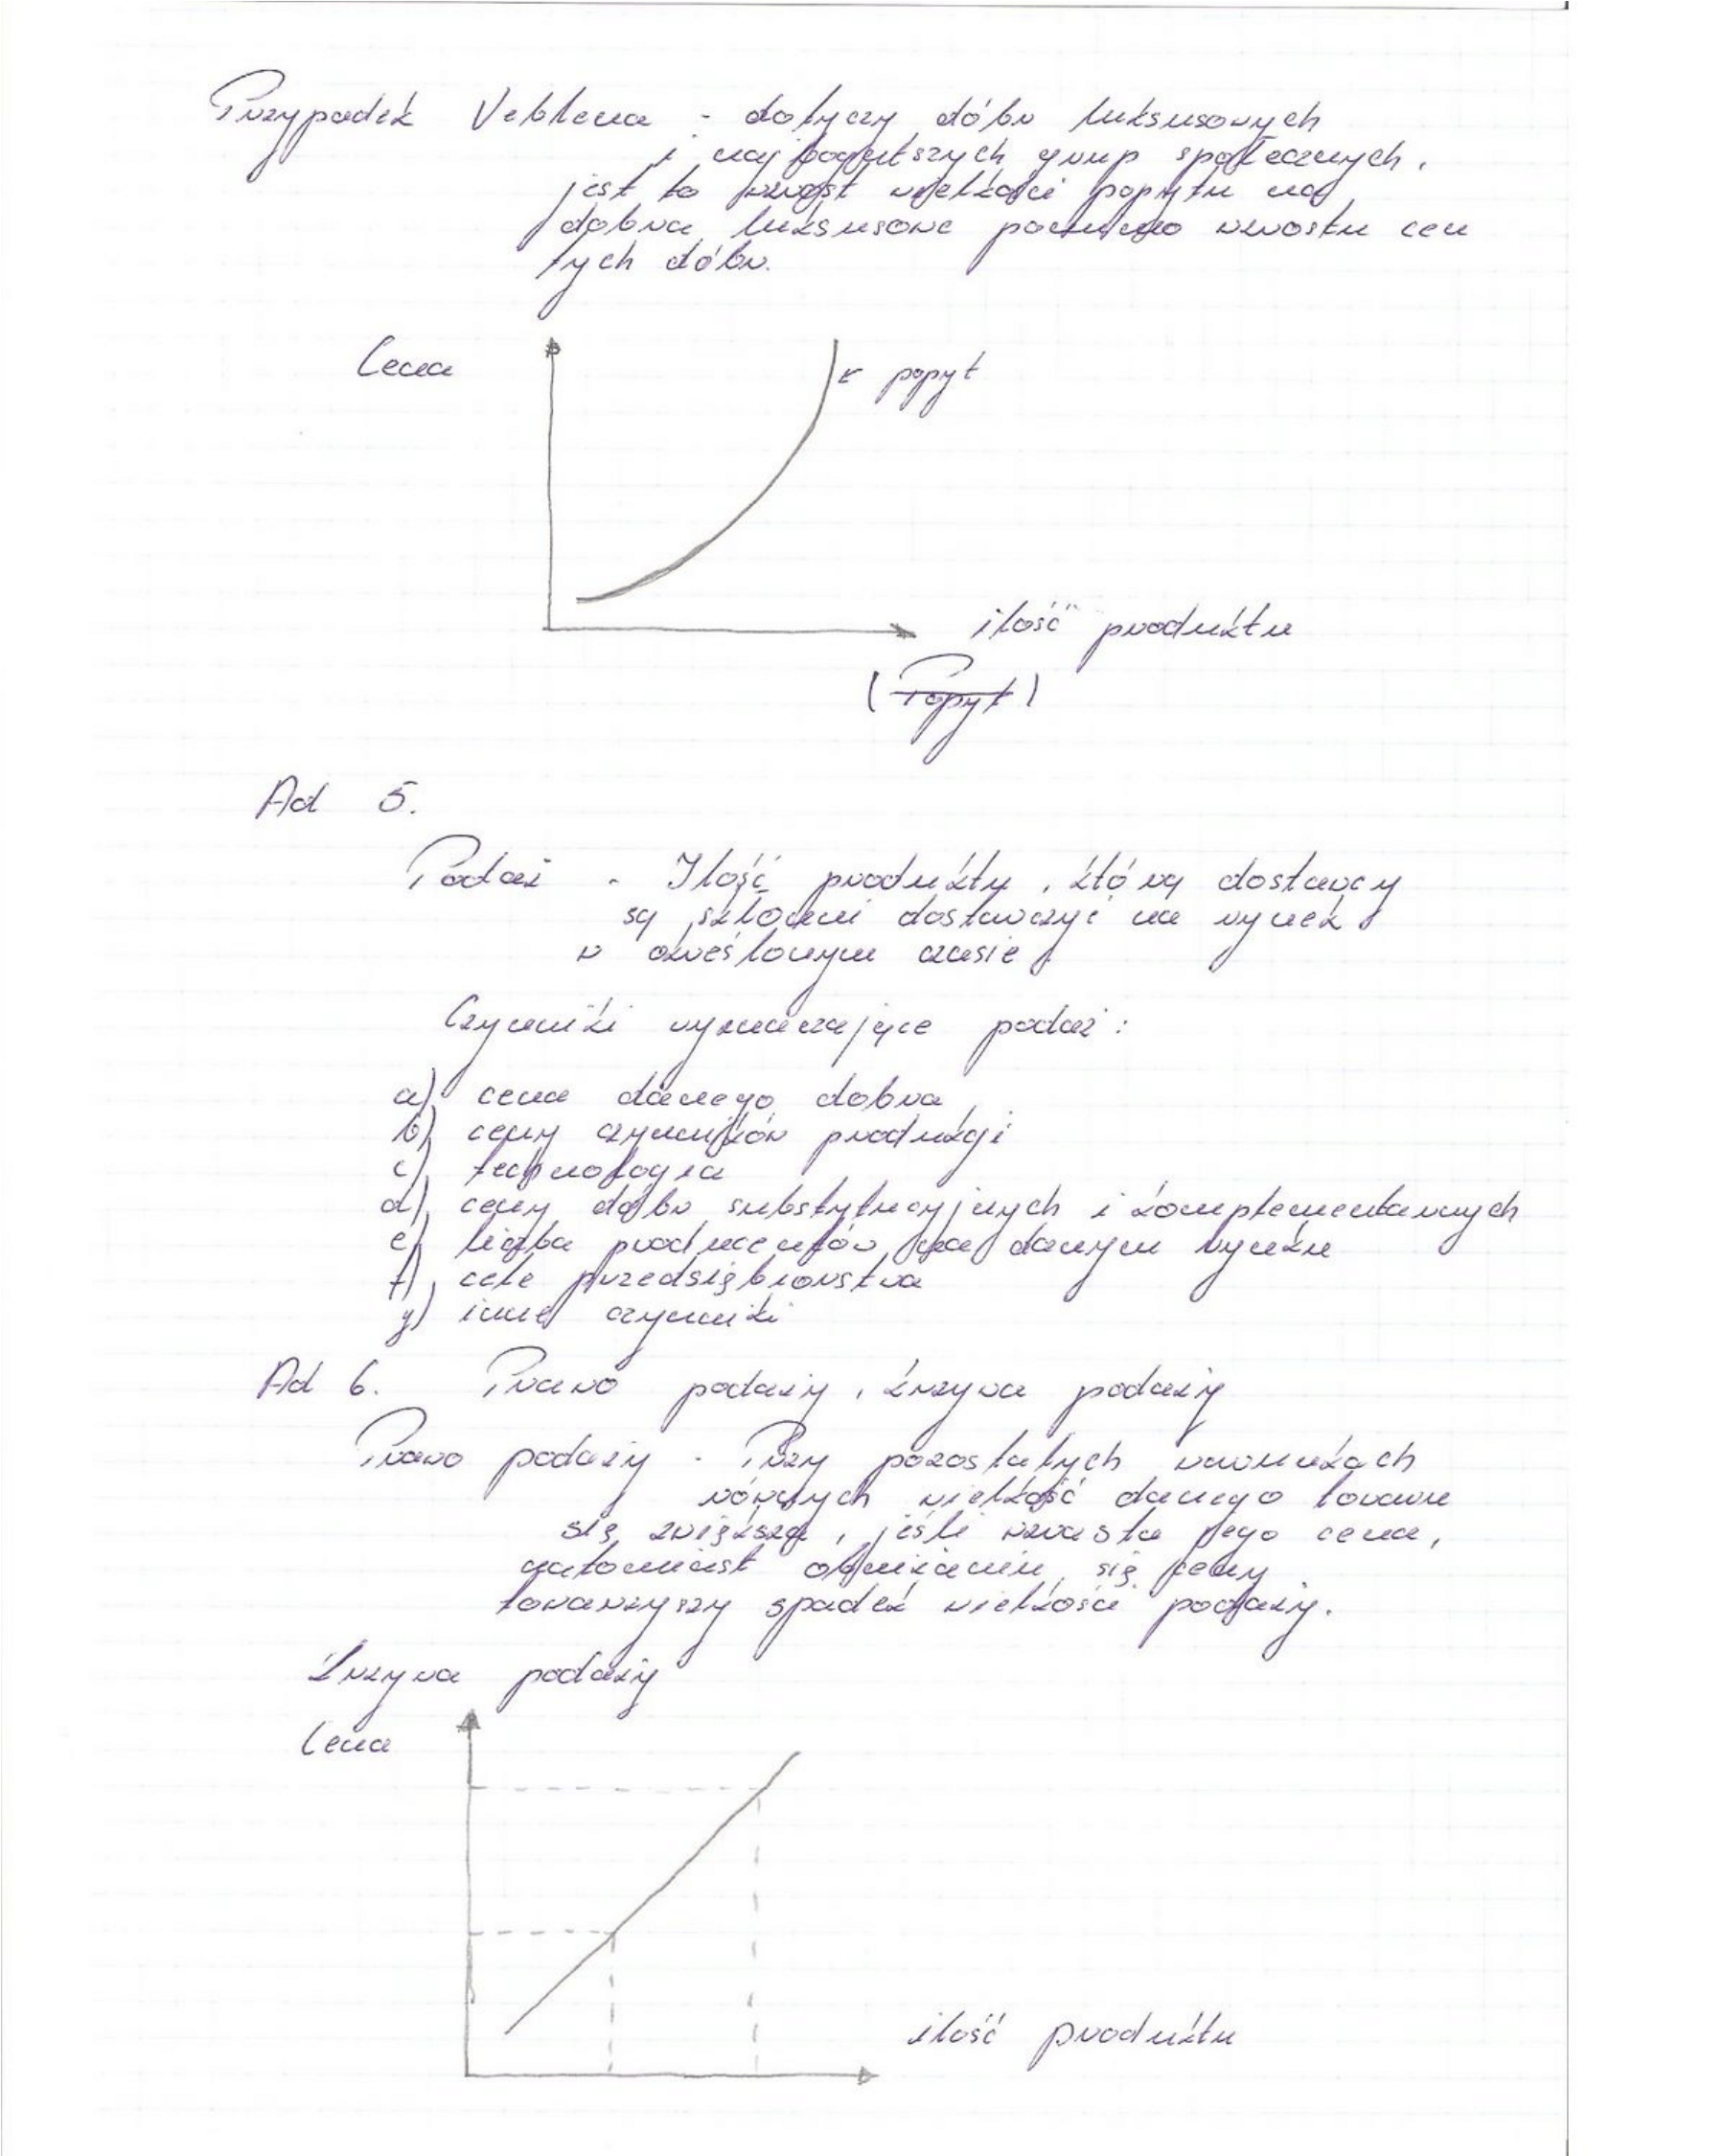 Przypadek Veblena - dotyczy dóbr luksusowych
i najbogatszych grup społecznych,
jest to wzrost wielkości popytu na
dobra luksusowe pomimo wzrostu cen
tych dóbr.
Cena
popyt
ilość produktu
(Popyt)
Ad 5.
Podaż - Ilość produkty, którą dostawcy
są skłonni dostarczyć na rynek
w określonym czasie
Czynniki wyznaczające podaż:
a) cena danego dobra
b) ceny czynników produkcji
c) technologia
d) ceny dóbr substytucyjnych i komplementarnych
e) liczba producentów na danym rynku
f) cele przedsiębiorstwa
g) inne czynniki
Ad 6. Prawo podaży, krzywa podaży
Prawo podaży - Przy pozostałych warunkach
równych wielkość danego towaru
się zwiększa, jeśli wzrasta jego cena,
natomiast obniżaniu się ceny
towarzyszy spadek wielkości podaży.
Krzywa podaży
Cena
ilość produktu